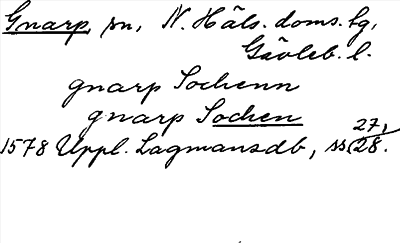 Gnarp, sn, N. Häls. doms. tg,
Gävleb. l.
gnarp Sochenn
gnarp Sochen
1578 Uppl. Lagmansdb, ss. 27, 28.